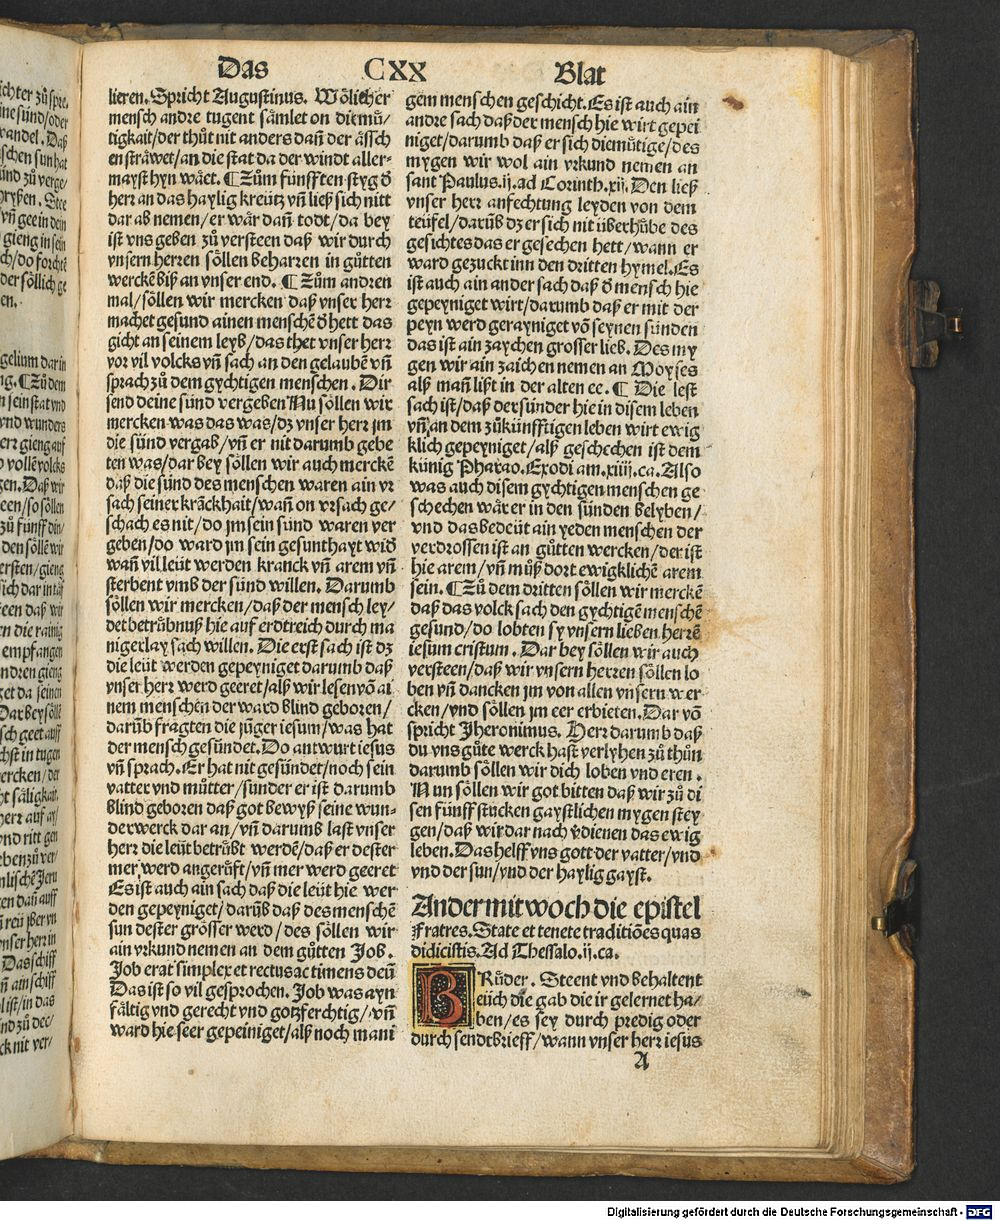 Das CXX Blat
lieren. Spricht Augustinus. Wöllicher
mensch andre tugent sämlet on diemů/
tigkait/der thůt nit anders dañ der ässch
en sträwet/an die stat da der windt aller-
mayst hyn wäet. ¶ Zům fünfften styg d̕
herr an das haylig kreütz vñ ließ sich nitt
dar ab nemen/er wär dañ todt/da bey
ist vns geben zů versteen daß wir durch
vnsern herren söllen beharren in gůtten
werckēbiß an vnser end. ¶ Zům andren
mal/söllen wir mercken daß vnser herr
machet gesund ainen menschē d̕ hett das
gicht an seinem leyb/das thet vnser herr
vor vil volcks vñ sach an den gelaubē vñ
sprach zů dem gychtigen menschen. Dir
send deine sünd vergeben Nu söllen wir
mercken was das was/dz vnser herr jm
die sünd vergab/vñ er nit darumb gebe
ten was/dar bey söllen wir auch merckē
daß die sünd des menschen waren ain vr
sach seiner kräckhait/wañ on vrsach ge/
schach es nit/do jm sein sünd waren ver
geben/do ward jm sein gesunthayt wid̕
wañ vil leüt werden kranck vñ arem vñ
sterbent vmb der sünd willen. Darumb
söllen wir mercken/daß der mensch ley/
det betrübnuß hie auf erdtreich durch ma
nigerlay sach willen. Die erst sach ist dz
die leüt werden gepeyniget darumb daß
vnser herr werd geeret/alß wir lesen võ ai
nem menschen der ward blind geboren/
darüb fragten die jüger iesum/was hat
der mensch gesündet. Do antwurt iesus
vñ sprach. Er hat nit gesündet/noch sein
vatter vnd můtter/sunder er ist darumb
blind geboren daß got bewyß seine wun/
derwerck dar an/vñ darumb last vnser
herr die leüt betrübt werdē/daß er dester
mer werd angerüfft/vñ mer werd geeret
Es ist auch ain sach daß die leüt hie wer
den gepeyniget/darüb daß des menschē
sun dester grösser werd/des söllen wir
ain vrkund nemen an dem gůtten Job.
Job erat simplex et rectus ac timens deū
Das ist so vil gesprochen. Job was ayn
fältig vnd gerecht vnd gotzferchtig/vñ
ward hie seer gepeiniget/alß noch mani
gem menschen geschicht. Es ist auch ain
andre sach daß der mensch hie wirt gepei
niget/darumb daß er sich diemůtige/des
mygen wir wol ain vrkund nemen an
sant Paulus.ij.ad Corinth.xij. Den ließ
vnser herr anfechtung leyden von dem
teüfel/darüb dz er sich nit überhübe des
gesichtes das er gesechen hett/wann er
ward gezuckt inn den dritten hymel. Es
ist auch ain ander sach daß d̕ mensch hie
gepeyniget wirt/darumb daß er mit der
peyn werd gerayniget võ seynen sünden
das ist ain zaychen grosser lieb. Des my
gen wir ain zaichen nemen an Moyses
alß mañ lißt in der alten ee. ¶ Die lest
sach ist/daß der sünder hie in disem leben
vñ an dem zůkünfftigen leben wirt ewig
klich gepeyniget/alß geschechen ist dem
künig Pharao. Exodi am.xiiij.ca. Also
was auch disem gychtigen menschen ge
schechen wär er in den sünden belyben/
vnd das bedeüt ain yeden menschen der
verdrossen ist an gůtten wercken/der ist
hie arem/vñ můß dort ewigklichē arem
sein. ¶ Zů dem dritten söllen wir merckē
daß das volck sach den gychtigē menschē
gesund/do lobten sy vnsern lieben herrē
iesum cristum. Dar bey söllen wir auch
versteen/daß wir vnsern herren söllen lo
ben vñ dancken jm von allen vnsern wer
cken/vnd söllen jm eer erbieten. Dar võ
spricht Jheronimus. Herr darumb daß
du vns gůte werck hast verlyhen zů thůn
darumb söllen wir dich loben vnd eren.
Nun söllen wir got bitten daß wir zů di
sen fünff stucken gaystlichen mygen stey
gen/daß wir dar nach v̕dienen das ewig
leben. Das helff vns gott der vatter/vnd
vnd der sun/vnd der haylig gayst.
An der mitwoch die epistel
Fratres. State et tenete traditiões quas
didicistis. Ad Thessalo.ij.ca.
BRüder. Steent vnd behaltent
eüch die gab die ir gelernet ha/
ben/es sey durch predig oder
durch sendtbrieff/wann vnser herr iesus
A
Digitalisierung gefördert durch die Deutsche Forschungsgemeinschaft - DFG